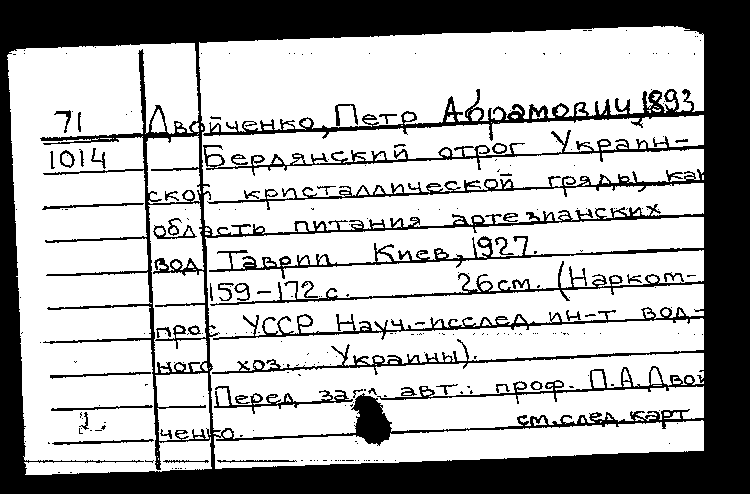 71 Двойченко, Петр Абрамович, 1893
1014 Бердянский отрог Украин-
ской кристаллической гряды, как
область питания артезианских
вод Таврии. Киев, 1927.
159-172 с. 26см. (Нарком-
прос УССР Науч.-исслед. ин-т вод-
ного хоз. Украины).
Перед загл. авт.: проф. П.А.Двой
2. ченко. см.след.карт